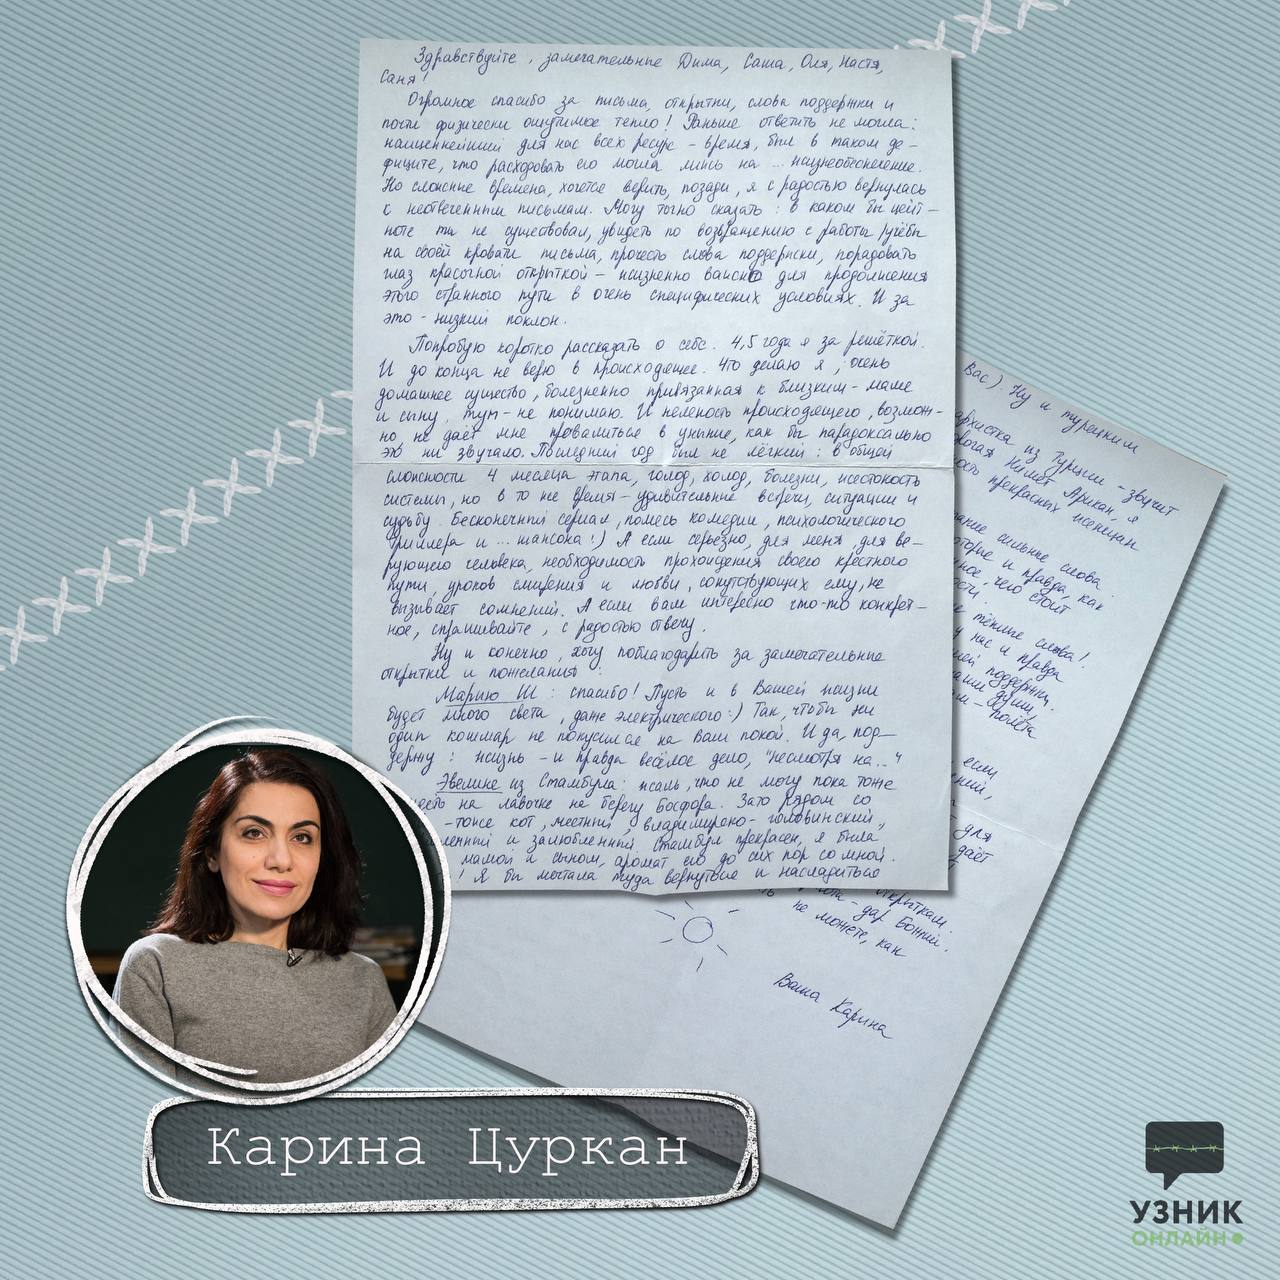 Здравствуйте, замечательные Дима, Саша, Оля, Настя,
Саня!
Огромное спасибо за письма, открытки, слова поддержки и
почти физически ощутимое тепло! Раньше ответить не могла:
наиценнейший для нас всех ресурс - время, был в таком де-
фиците, что расходовать его могла лишь на ... жизнеобеспечение.
Но сложные времена, хочется верить, позади, я с радостью вернулась
к неотвеченным письмам. Могу точно сказать: в каком бы цейт-
ноте ты не существовал, увидеть по возвращению с работы/учёбы
на своей кровати письма, прочесть слова поддержки, порадовать
глаз красочной открыткой - жизненно важно для продолжения
этого странного пути в очень специфических условиях. И за
это - низкий поклон.
Попробую коротко рассказать о себе. 4,5 года я за решёткой.
И до конца не верю в происходящее. Что делаю я, очень
домашнее существо, болезненно привязанная к близким - маме
и сыну, тут - не понимаю. И нелепость происходящего, возмож-
но, не даёт мне провалиться в уныние, как бы парадоксально
это ни звучало. Последний год был не лёгкий: в общей
сложности 4 месяца этапа, голод, холод, болезни, жестокость
системы, но в то же время - удивительные встречи, ситуации и
судьбы. Бесконечный сериал, помесь комедии, психологического
триллера и ... шансона :) А если серьезно, для меня, для ве-
рующего человека, необходимость прохождения своего крестного
пути, уроков смирения и любви, сопутствующих ему, не
вызывает сомнений. А если вам интересно что-то конкрет-
ное, спрашивайте, с радостью отвечу.
Ну и конечно, хочу поблагодарить за замечательные
открытки и пожелания
Марию Ш: спасибо! Пусть и в Вашей жизни
будет много света, даже электрического :) Так, чтобы ни
один кошмар не покусился на Ваш покой. И да, под-
держу: жизнь - и правда весёлое дело, "несмотря на..."
Эвелине из Стамбула: жаль, что не могу пока тоже
на лавочке на берегу Босфора. Зато рядом со
- тоже кот, местный, владимирено-головинский,
и залюбленный. Стамбул прекрасен, я была
мамой и сыном, аромат его до сих пор со мной.
! Я бы мечтала туда вернуться и насладиться
Вас). Ну и турецким
из Турции - звучит
Нимет Арикан, я
прекрасных женщин
такие сильные слова
которые и правда, как
чего стоит
тёплые слова!
у нас и правда
поддержки
души,
- полёта
если
для
даёт
открыткам.
- дар Божий.
не можете, как
Ваша Карина
Карина Цуркан
УЗНИК
ОНЛАЙН